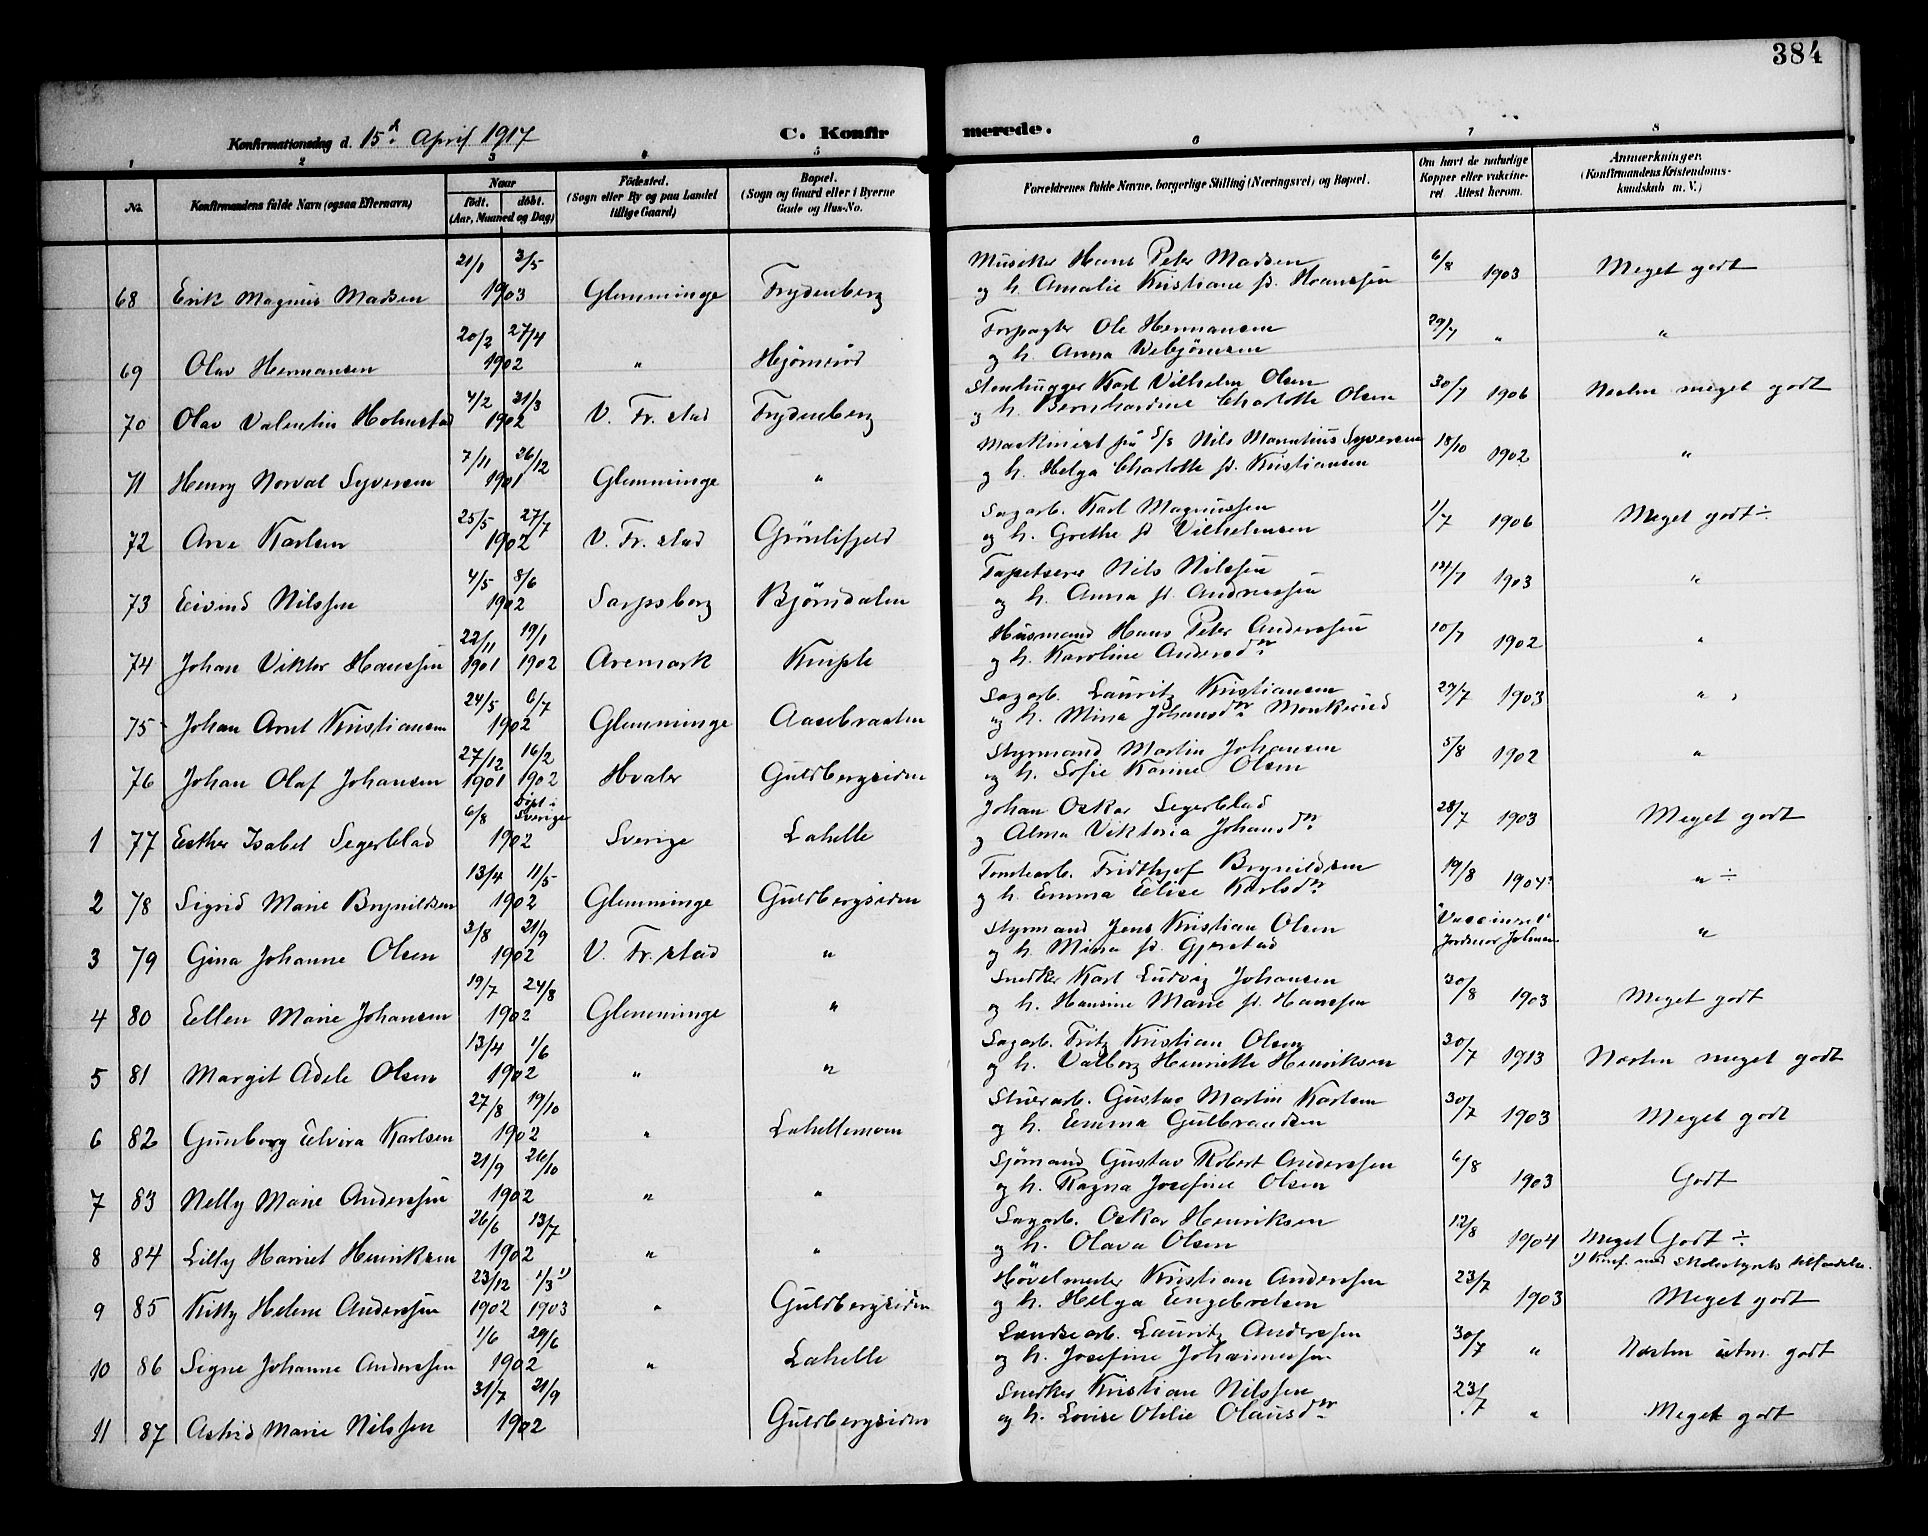 384
Konfirmationsdag d. 15d. April 1917
C. Konfirmerede.
1 2 3 4 5 6 7 8
No. Konfirmandens fulde Navn (ogsaa Efternavn) Naar født. døbt. (Aar, Maaned og Dag) Fødested. (Sogn eller By og paa Landet tillige Gaard) Bopæl. (Sogn og Gaard eller i Byerne Gade og Hus-No. Forældrenes fulde Navne, borgerlige Stilling (Næringsvei) og Bopæl. Om havt de naturlige Kopper eller vaksineret Attest herom. Anmerkninger. (Konfirmandens Kristendomskundskab m. V.)
68 Erik Magnus Madsen 21/1 3/5 1903 Glemminge Frydenberg Musiker Hans Peter Madsen 6/8 1903 Meget godt
og h. Amalie Kristiane f. Hanssen
69 Olav Hermansen 20/2 27/4 1902 " Hjørnerød Forpagter Ole Hermansen 29/7 " "
og h. Anna Vebjørnsen
70 Olav Valentin Holmstad 4/2 31/3 1902 V. Fr.stad Frydenberg Stenhugger Karl Vilhelm Olsen 30/7 1906 Næsten meget godt
og h. Bernhardine Charlotte Olsen
71 Henry Norval Syversen 7/11 26/12 1901 Glemminge " Maskinist på S/S Nils Syversen 18/10 1902 "
og h. Helga Charlotte f. Kristiansen
72 Arne Karlsen 25/5 27/7 1902 V. Fr.stad Grønlifjeld Sagarb. Karl Magnussen 1/7 1906 Meget godt ÷
og h. Grethe f. Vilhelmsen
73 Eivind Nilssen 4/5 8/6 1902 Sarpsborg Bjørndalen Tapetserer Nils Nilssen 14/7 1903 "
og h. Anna f. Andreassen
74 Johan Viktor Hanssen 22/11 1901 19/1 1902 Aremark Kniple Husmand Hans Peter Anderssen 10/7 1902 "
og h. Karoline Andersdtr.
75 Johan Arnt Kristiansen 24/5 6/7 1902 Glemminge Aasebraaten Sagarb. Lauritz Kristiansen 27/7 1903 "
og h. Mina Johansdtr. Monkerud
76 Johan Olaf Johansen 27/12 1901 16/2 1902 Hvaler Guldbergsiden Styrmand Martin Johansen 5/8 1902 "
og h. Sofie Karine Olsen
1 77 Esther Isabel Segerblad 6/8 døbt i Sverige 1902 Sverige Lahelle Johan Oskar Segerblad 28/7 1903 Meget godt
og Alma Viktoria Johansdtr.
2 78 Sigrid Marie Brynildsen 13/4 11/5 1902 Glemminge Guldbergsiden Tomtearb. Fridthjof Brynildsen 19/8 1904 " ÷
og h. Emma Elise Karlsdtr
3 79 Gina Johanne Olsen 3/8 21/9 1902 V. Fr.stad " Styrmand Jens Kristian Olsen "Vaccineret" "
og h. Mina f. Gjerstad Jordmor Johnsen
4 80 Ellen Marie Johansen 19/7 24/8 1902 Glemminge " Snedker Karl Ludvig Johansen 30/8 1903 Meget godt
og h. Hansine Marie f. Hanssen
5 81 Margit Adele Olsen 13/4 1/6 1902 " " Sagarb. Fritz Kristian Olsen 30/7 1913 Næsten meget godt
og h. Valborg Henriette Henriksen
6 82 Gunborg Elvira Karlsen 27/8 19/10 1902 " Lahellemoen Stuerarb. Gustav Martin Karlsen 30/7 1903 Meget godt
og h. Emma Gulbrandsen
7 83 Nelly Marie Anderssen 21/9 26/10 1902 " " Sjømand Gustav Robert Anderssen 6/8 1903 Godt
og h. Ragna Josefine Olsen
8 84 Lilly Harriet Henriksen 26/6 13/7 1902 " " Sagarb. Oskar Henriksen 12/8 1904 Meget Godt ÷
og h. Olava Olsen
1) Konf. med Skolestyrets tilladelse.
9 85 Kitty Helene Anderssen 23/12 1902 1/3 1) 1903 " Guldbergsiden Høvelmester Kristian Anderssen 23/7 1903 Meget godt
og h. Helga Engebretsen
10 86 Signe Johanne Anderssen 1/6 29/6 1902 " Lahelle Landsearb. Lauritz Anderssen 30/7 " Næsten utm. godt
og h. Josefine Johannessen
11 87 Astrid Marie Nilssen 31/7 21/9 1902 Guldbergsiden Snedker Kristian Nilssen 23/7 " Meget godt
og h. Lovise Otilie Olausdtr